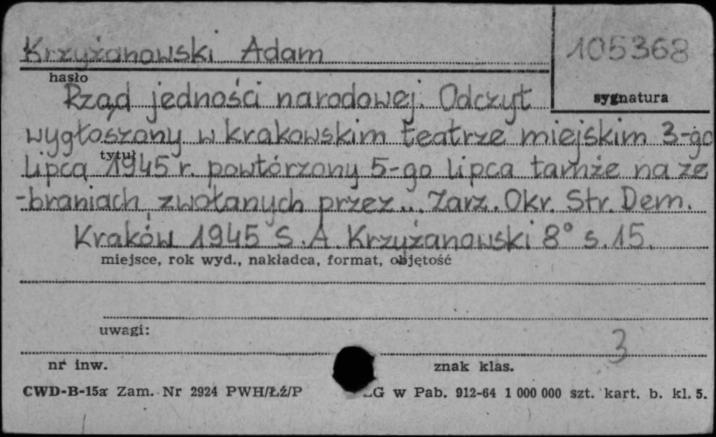 Krzyżanowski Adam
105368
hasło
sygnatura
Rząd jedności narodowej. Odczyt
wygłoszony w krakowskim teatrze miejskim 3-go
tytuł
lipca 1945 r. powtórzony 5-go lipca tamże na ze
-braniach zwołanych przez... Zarz. Okr. Str. Dem.
Kraków 1945 S. A. Krzyżanowski 8° s. 15.
miejsce, rok wyd., nakładca, format, objętość
uwagi:
3
nr inw.
znak klas.
CWD-B-15a Zam. Nr 2924 PWH/Łź/P G w Pab. 912-64 1 000 000 szt. kart. b. kl. 5.